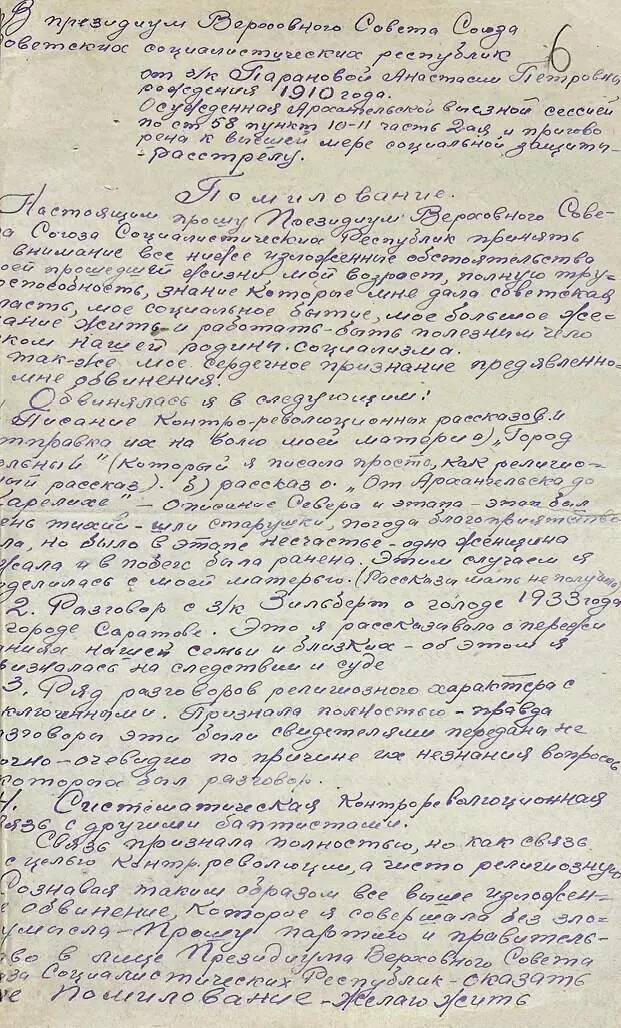 В президиум Верховного Совета Союза
6
советских социалистических республик
от з/к Парановой Анастасии Петровны
рождения 1910 года.
Осужденная Архангельской выезной сессией
по ст 58 пункт 10-11 часть 2ая и пригово
рена к высшей мере социальной защиты-
- расстрелу.
Помилование.
Настоящим прошу Президиум Верховного Сове-
а Союза Социалистических Республик принять
внимание все ниже изложенние обстоятельства
оей прошедшей жизни, мой возраст, полную тру-
оспособность, знание которые мне дала советская
ласть, мое социальное бытие, мое большое же-
ание жить и работать - быть полезним чело
ком нашей родины социализма.
так-же мое сердечное признание предявленно-
мне обвинения.
Обвинялась я в следующим:
Писание контр-революционных рассказов и
тправка их на волю моей матери а) „Город
ельный" (который я писала просто, как религио-
ный рассказ). б) рассказ о. „От Архангельска до
Карелихе" – описание Севера и этапа - этап был
ень тихий - шли старушки, погода благоприятство
ла, но было в этапе несчастье - одна женщина
жала и в побеге была ранена. Этим случаем я
оделилась с моей матерью. (Рассказы мать не получила)
2. Разговор с з/к Зильберт о голоде 1933 года
городе Саратове. Это я рассказывала о пережи
аниях нашей семьи и близких - об этом я
ризналась на следствии и суде
3. Ряд разговоров религиозного характера с
ключенными. Признала полностью - правда
азговоры эти были свидетелями переданы не
очно - очевидно по причине их незнания вопросов
которых был разговор.
4. Систематическая контрреволюционная
вязь с другими баптистами.
Связь признала полностью, но как связь
с целью контр.революции, а чисто религиозную
Дознавая таким образом все выше изложен-
е обвинение, которое я совершала без зло-
умысла - Прошу партию и правитель-
тво в лице Президиума Верховного Совета
юза Социалистических Республик - оказать
не Помилование - желаю жить